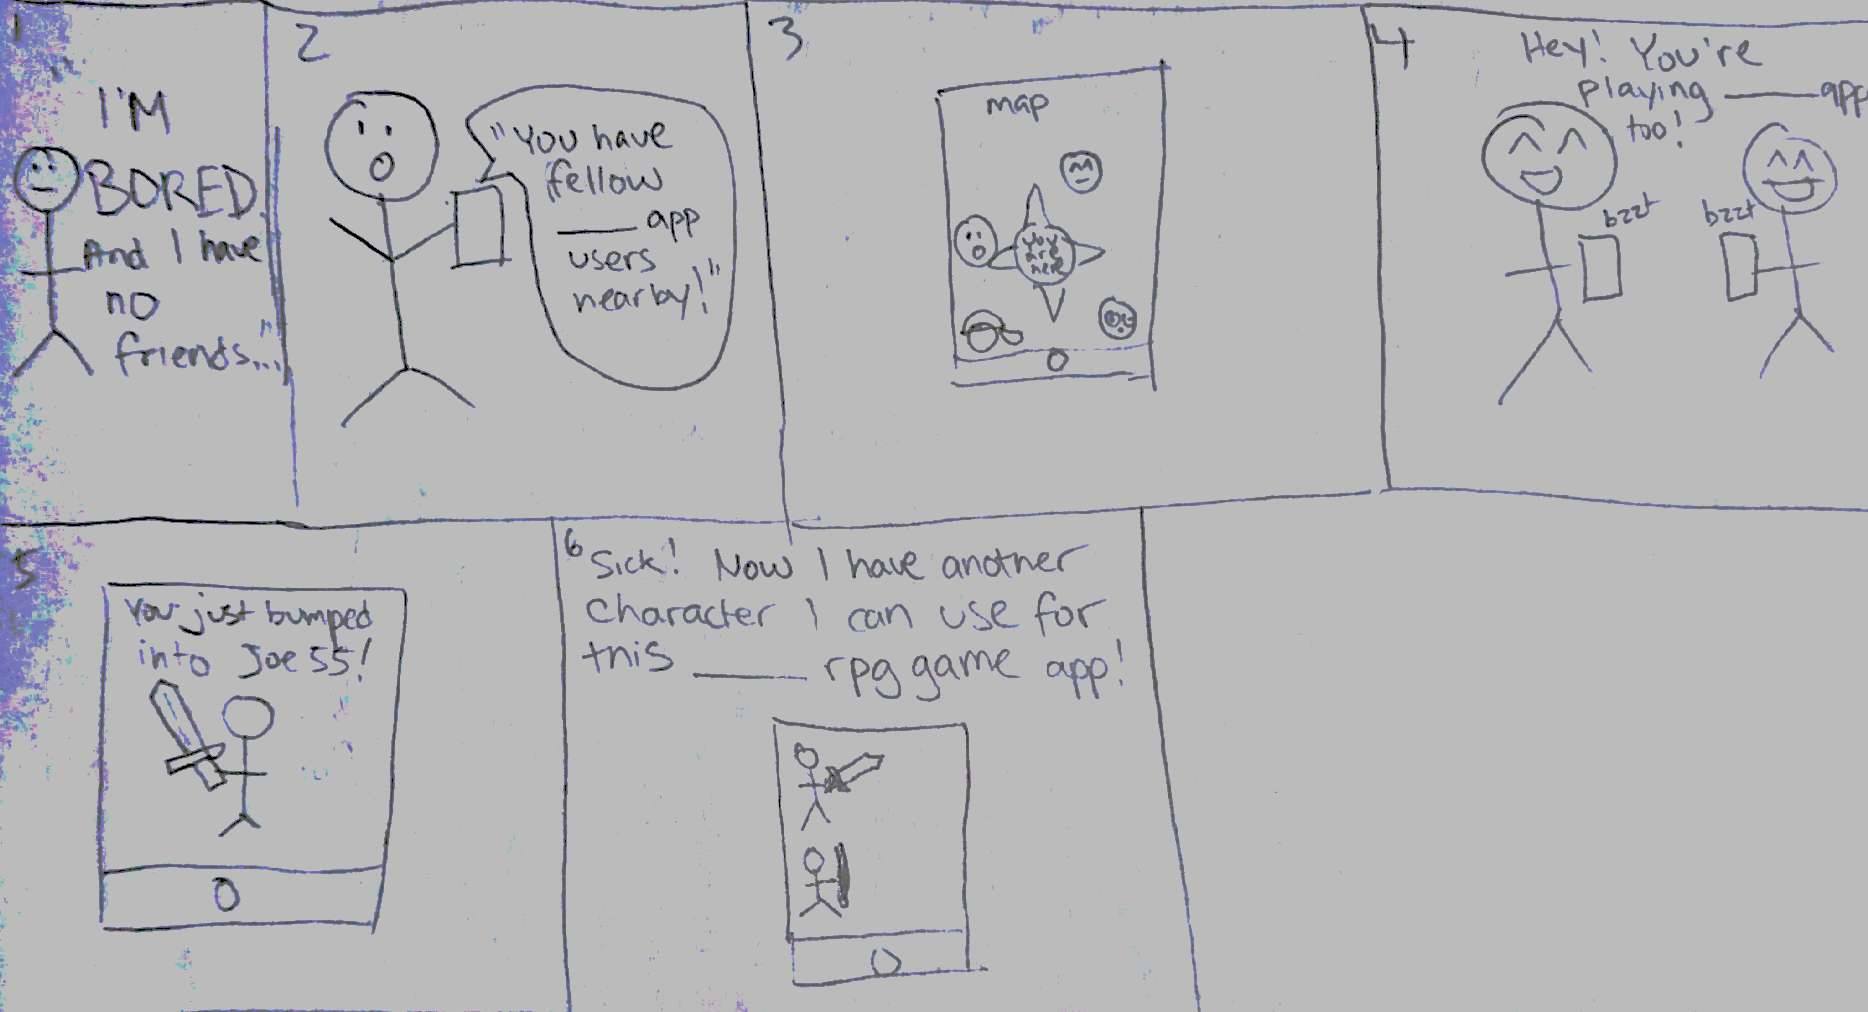 1
"I'M
BORED.
And I have
no
friends..."
2
"You have
fellow
____ app
users
nearby!"
3
map
you
are
here
4
Hey! You're
playing ____ app
too!
bzzt
bzzt
5
You just bumped
into Joe55!
6
Sick! Now I have another
character I can use for
this ____ rpg game app!